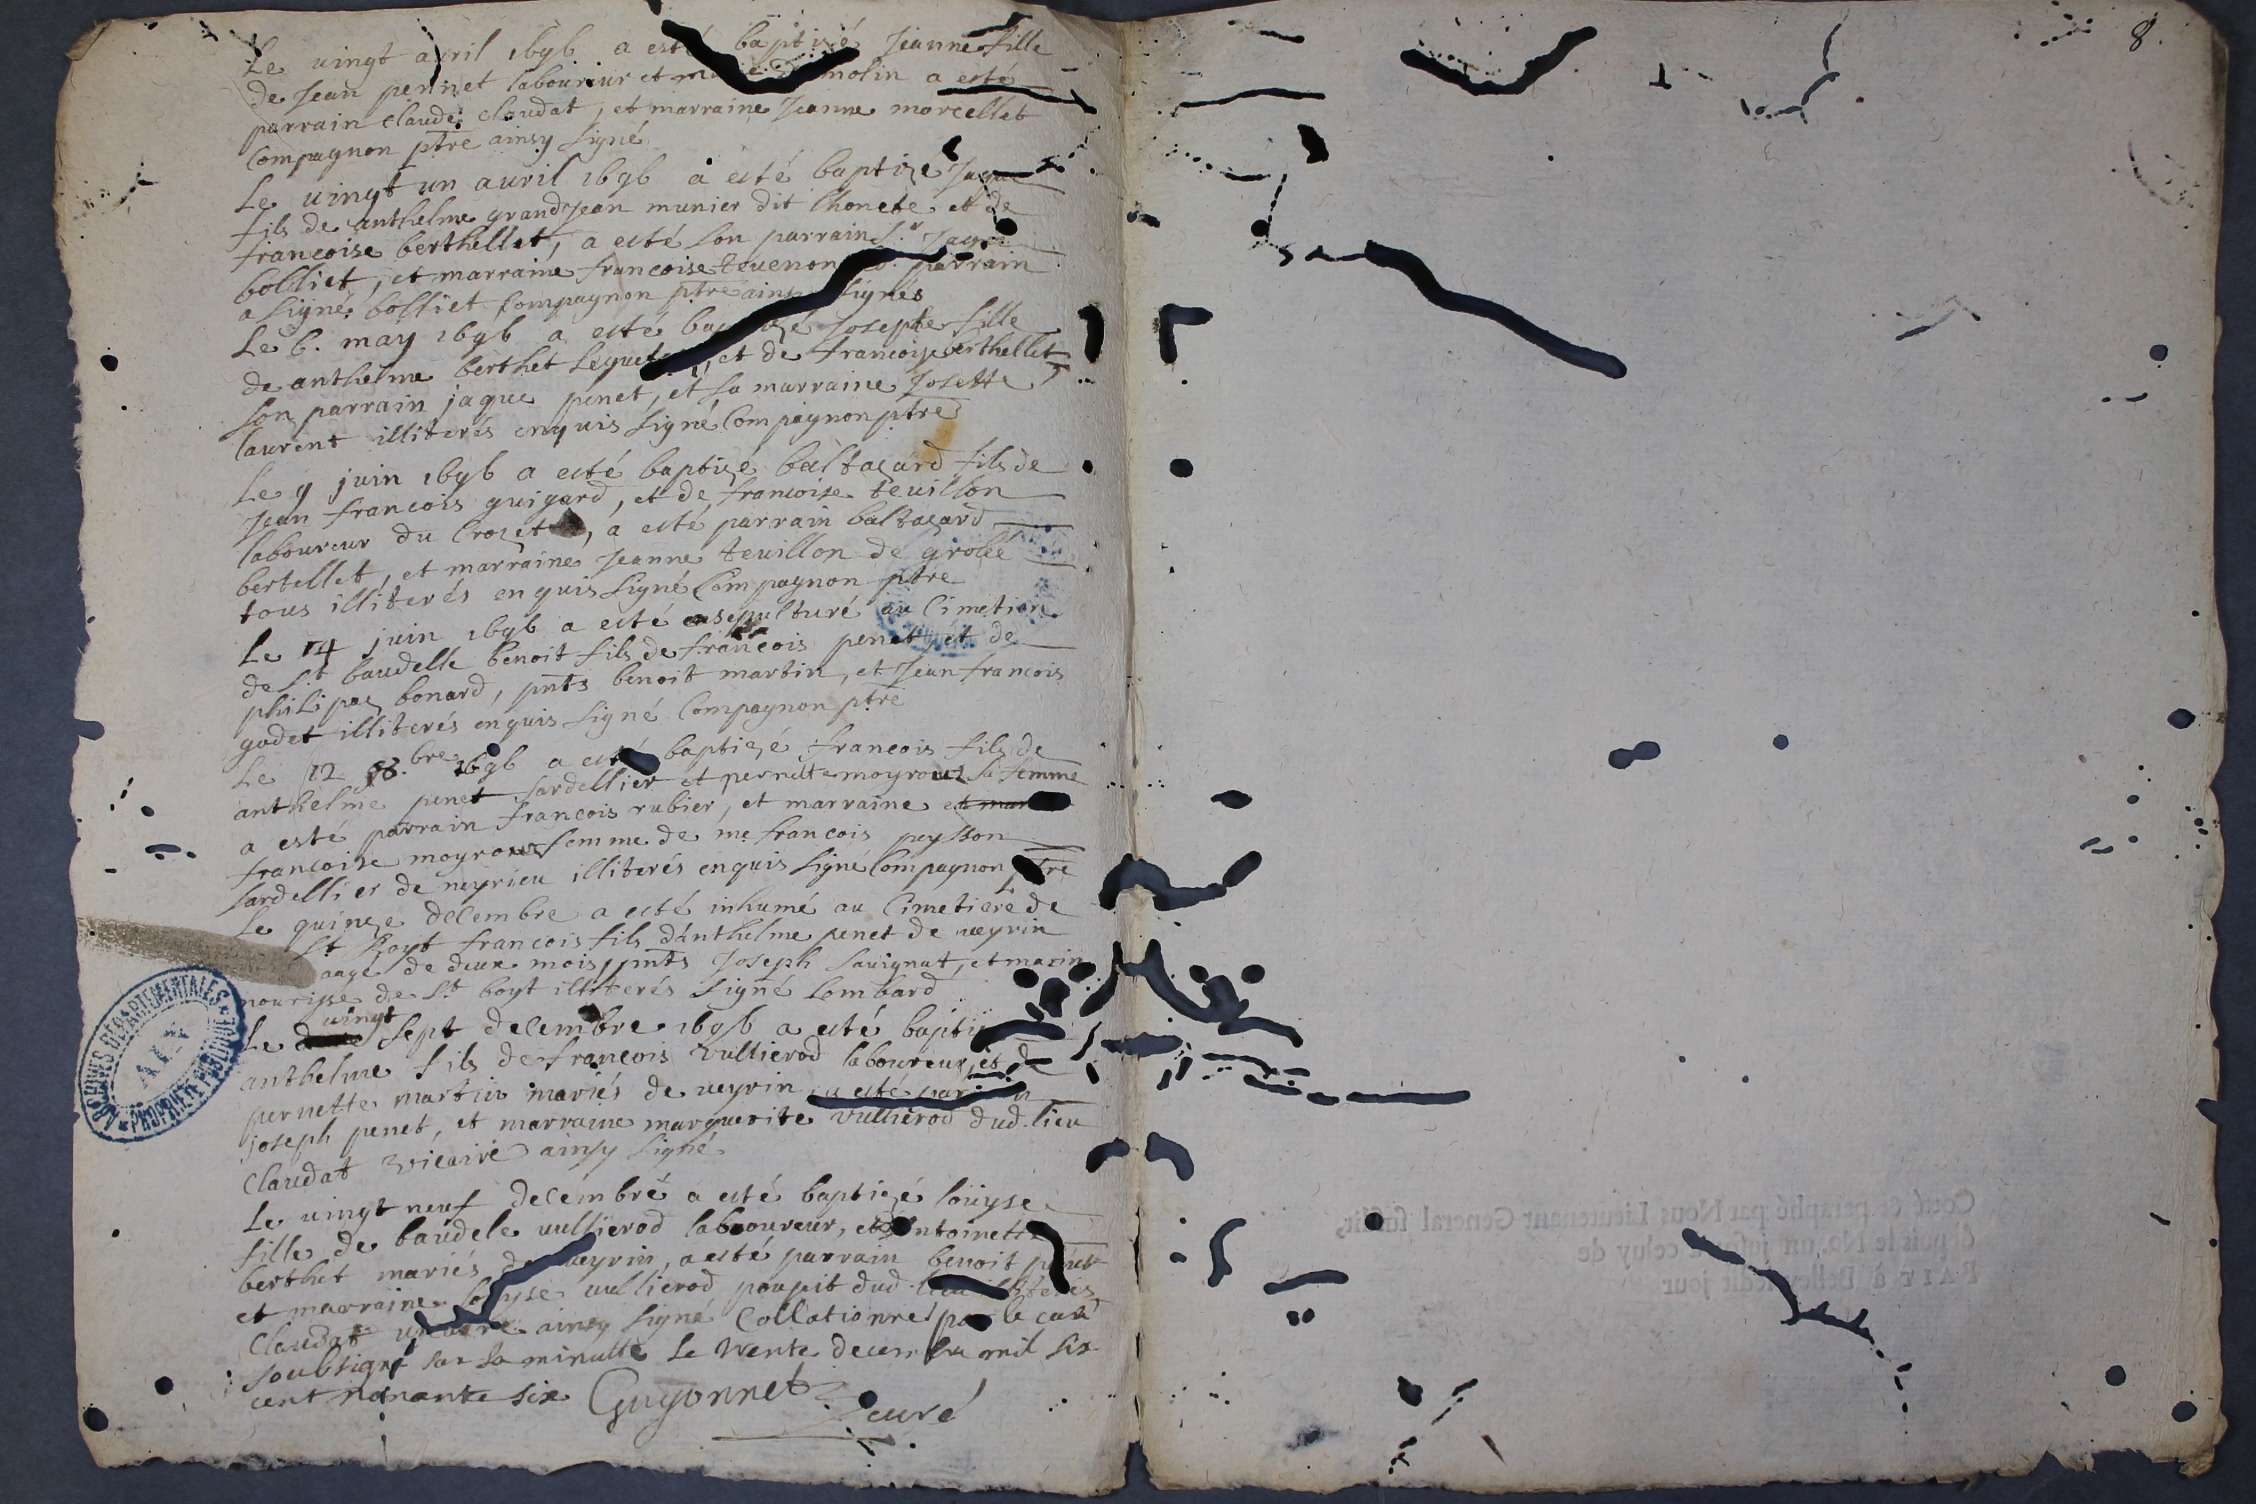 8.
Le vingt avril 1696 a esté baptizé Jeanne fille
de Jean pernet laboureur et molin a esté
parrain claude claudat, et marraine Jeanne morcellet
Compagnon ptre ainsy signé
Le vingt un avril 1696 a esté baptizé Jaque
fils de anthelme grandJean munier dit et de
francoise berthellet, a esté son parrain Sr Jaque
bolliet, et marraine francoise tevenon parrain
a signé bolliet Compagnon ptre ainsy signés
Le 6. may 1696 a esté baptizé Josephe fille
de anthelme berthet et de francoise berthellet
son parrain jaque penet, et sa marraine Josette
laurent illiterés enquis signé Compagnon ptre
Le 9 juin 1696 a esté baptizé baltazard fils de
Jean francois guigard, et de francoise tevillon
laboureur du Crozet, a esté parrain baltazard
bertellet, et marraine Jeanne tevillon de grolée
tous illiterés enquis signé Compagnon ptre
Le 14 juin 1696 a esté ensepulturé au Cimetiere
de St baudelle benoit fils de francois penet et de
philipaz bonard, pnts benoit martin, et Jean francois
godet illiterés enquis signé Compagnon ptre
Le 12 bre 1696 a esté baptizé francois fils de
anthelme penet sardellier et pernette sa femme
a esté parrain francois rubier, et marraine et mar
francoise femme de me francois peysson
sardellier de neyrieu illiterés enquis signé Compagnon ptre
Le quinze decembre a esté inhumé au Cimetiere de
St francois fils d'Anthelme penet de veyrin
aagé de deux mois, pnts Joseph savignat, et marin
nourisse de St boyt illiterés signé Lombard
Le vingt sept decembre 1696 a esté baptizé
anthelme fils de francois vullierod laboureur, et de
pernette martin mariés de veyrin, a esté parrain
joseph penet, et marraine marguerite vullierod dud. lieu
Claudat vicaire ainsy signé
Le vingt neuf decembre a esté baptizé loüyse
fille de baudele vullierod laboureur, et d'Antoinette
berthet mariés de veyrin, a esté parrain benoit penet
et marraine loüyse vullierod poupit dud. lieu illiterés
Claudat vicaire ainsy signé Collationné par le curé
soubsigné sur sa minutte le trente decembre mil six
cent nonante six Guyonnet
curé
ARCHIVES DEPARTEMENTALES
AIN
PROPRIETE PUBLIQUE
Cotté & paraphé par Nous Lieutenant General susdit,
depuis le No. un jusqu'à celuy de
FAIT à Belley ledit jour